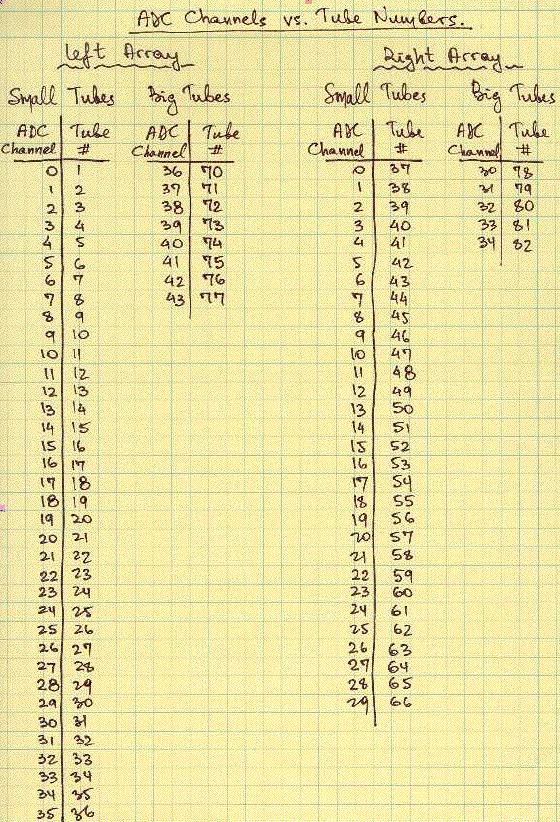 ADC Channels vs. Tube Numbers.
Left Array Right Array
Small Tubes Big Tubes Small Tubes Big Tubes
ADC Tube ADC Tube ADC Tube ADC Tube
Channel # Channel # Channel # Channel #
0 1 36 70 0 37 30 78
1 2 37 71 1 38 31 79
2 3 38 72 2 39 32 80
3 4 39 73 3 40 33 81
4 5 40 74 4 41 34 82
5 6 41 75 5 42
6 7 42 76 6 43
7 8 43 77 7 44
8 9 8 45
9 10 9 46
10 11 10 47
11 12 11 48
12 13 12 49
13 14 13 50
14 15 14 51
15 16 15 52
16 17 16 53
17 18 17 54
18 19 18 55
19 20 19 56
20 21 20 57
21 22 21 58
22 23 22 59
23 24 23 60
24 25 24 61
25 26 25 62
26 27 26 63
27 28 27 64
28 29 28 65
29 30 29 66
30 31
31 32
32 33
33 34
34 35
35 36